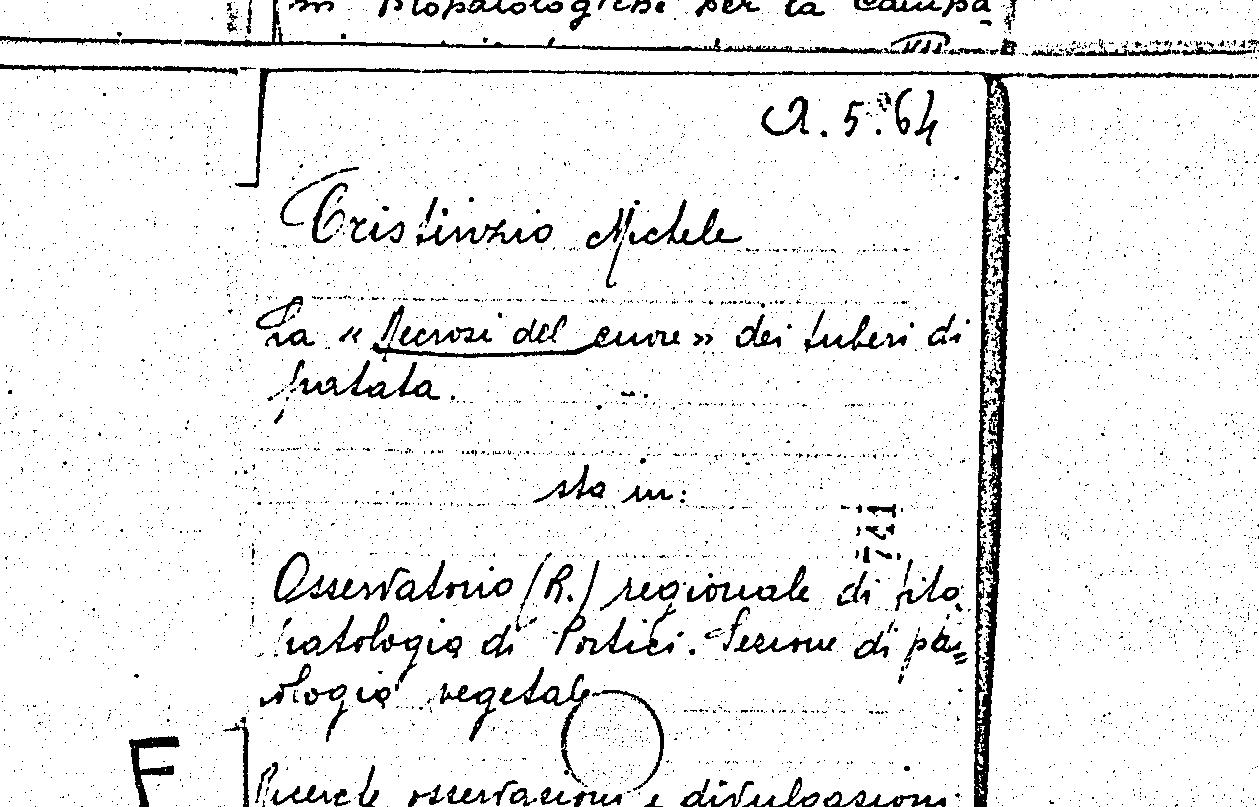 ni fitopatologiche per la Campa-
A. 5. 64
Cristinzio Michele
La « Necrosi del cuore » dei tuberi di
patata.
sta in:
741
Osservatorio (R.) regionale di fito
patologia di Portici. Sezione di pa=
tologia vegetale
F
Ricerche osservazioni e divulgazioni